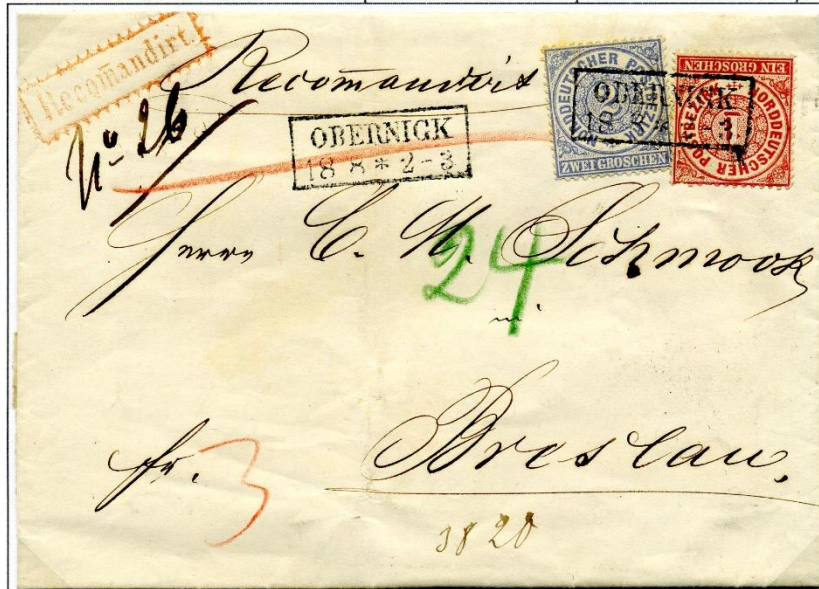 Recomandirt
Recomandirt
No 26
OBERNIGK
18 8 * 2-3
NORDDEUTSCHER POSTBEZIRK
ZWEI GROSCHEN
OBERNIGK
18 8 * 2-3
NORDDEUTSCHER POSTBEZIRK
1
EIN GROSCHEN
Herrn C. H. Schmook
24
in
Breslau.
fr. 3
3820